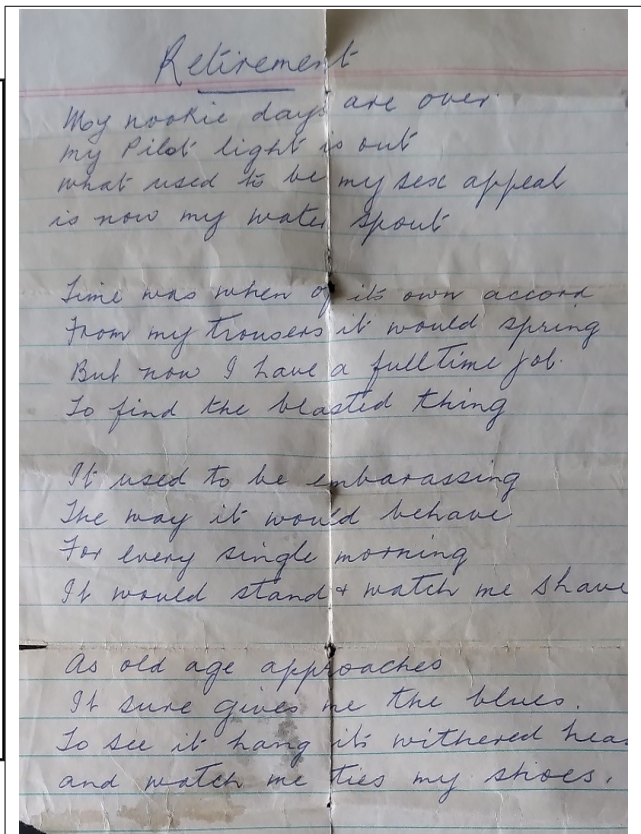 Retirement
My nookie days are over.
my Pilot light is out
what used to be my sex appeal
is now my water spout
Time was when of its own accord
From my trousers it would spring
But now I have a fulltime job.
To find the blasted thing
It used to be embarassing
The way it would behave
For every single morning
It would stand & watch me shave
As old age approaches
It sure gives me the blues.
To see it hang its withered hea
and watch me ties my shoes.